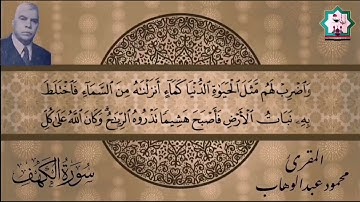 وَٱضْرِبْ لَهُم مَّثَلَ ٱلْحَيَوٰةِ ٱلدُّنْيَا كَمَآءٍ أَنزَلْنَٰهُ مِنَ ٱلسَّمَآءِ فَٱخْتَلَطَ
بِهِۦ نَبَاتُ ٱلْأَرْضِ فَأَصْبَحَ هَشِيمًا تَذْرُوهُ ٱلرِّيَٰحُ وَكَانَ ٱللَّهُ عَلَىٰ كُلِّ
المقرئ
محمود عبدالوهاب
سورة الكهف